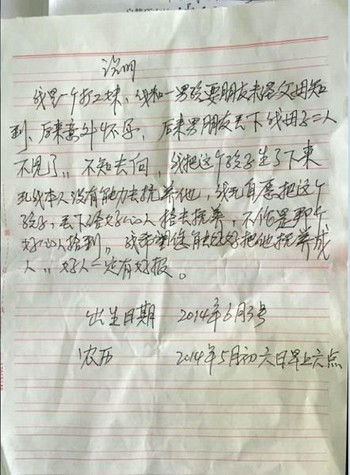 说明
我是一个打工妹，我和一男孩耍朋友未经父母知
到、后来意外怀孕，后来男朋友丢下我母子二人
不见了。不知去向，我把这个孩子生了下来
我本人没有能力去抚养他，我无
孩子，丢下给好心人捡去抚养，不保是那个
好心人捡到。我希望您能去好好把他抚养成
人。好人一定有好报。
出生日期 2014年6月3号
农历 2014年5月初六日早上六点